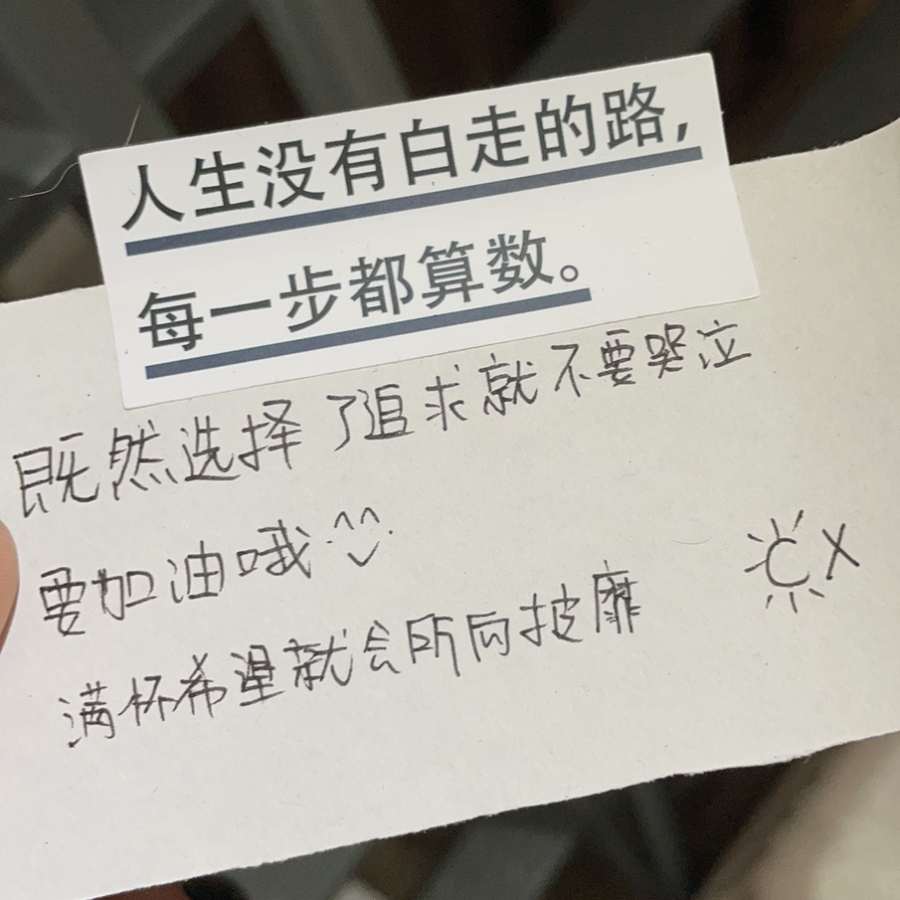 人生没有白走的路,
每一步都算数。
既然选择了追求就不要哭泣
要加油哦
满怀希望就会所向披靡
CX